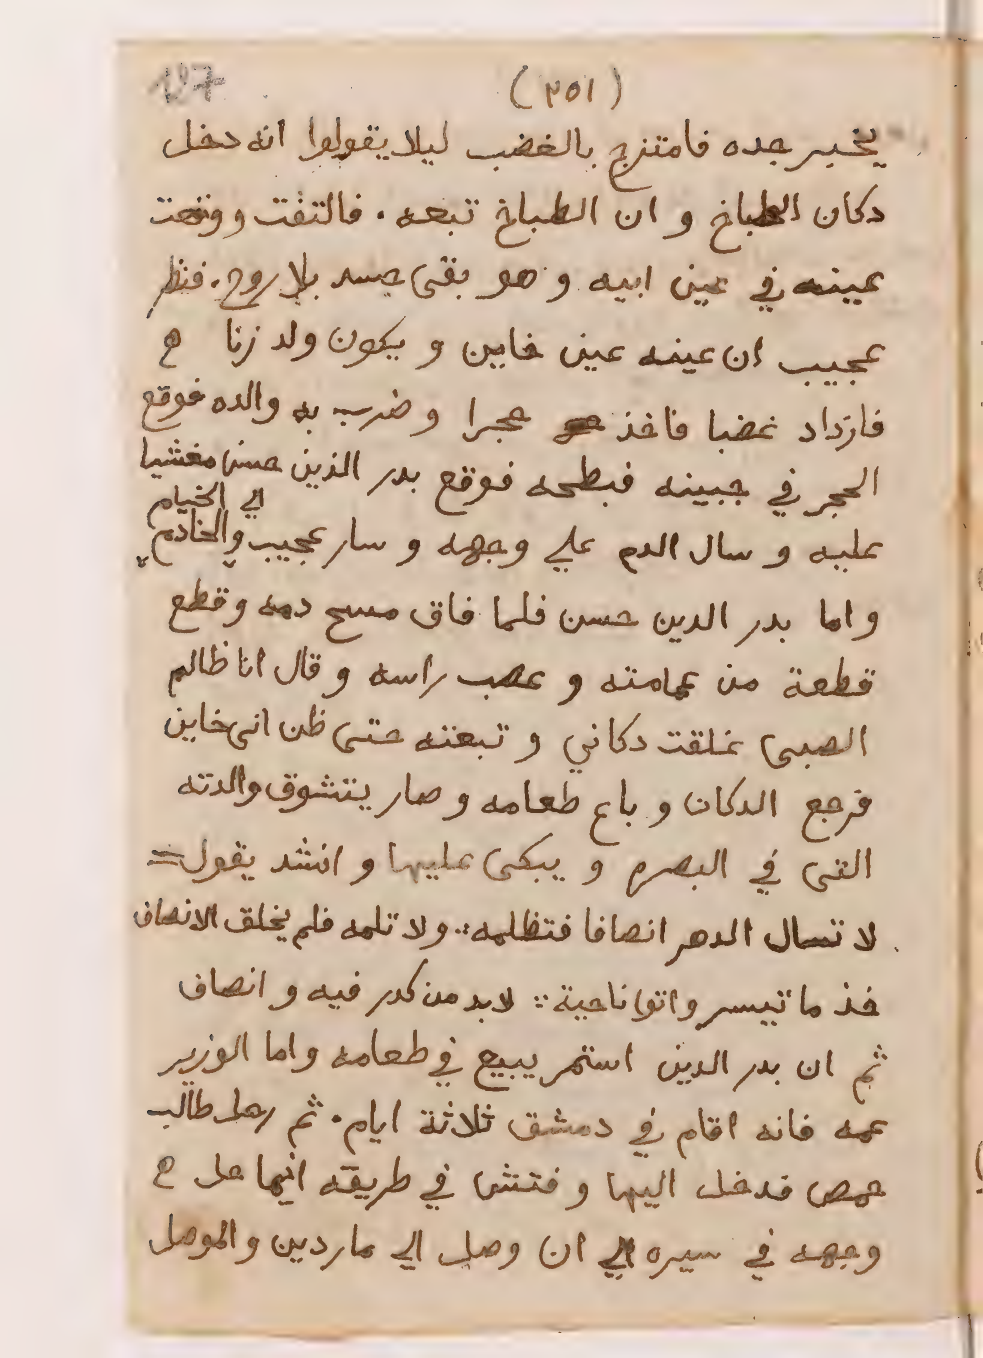 187
(٢٥١)
يخبر جده فامتزج بالغضب ليلا يقولوا انه دخل
دكان الطباخ و ان الطباخ تبعه . فالتفت ووقعت
عينه في عين ابيه و هو بقى جسد بلا روح . فنظر
عجيب ان عينه عين خاين و يكون ولد زنا م
فازداد غضبا فاخذ حجرا و ضرب به والده فوقع
الحجر في جبينه فبطحه فوقع بدر الدين حسن مغشيا
عليه و سال الدم علي وجهه و سار عجيب والخادم الي الخيام
و اما بدر الدين حسن فلما فاق مسح دمه و قطع
قطعة من عمامته و عصب راسه و قال انا ظالم
الصبى غلقت دكاني و تبعته حتى ظن انى خاين
فرجع الدكان و باع طعامه و صار يتشوق والدته
التى في البصره و يبكى عليها و انشد يقول =
لا تسال الدهر انصافا فتظلمه :. ولا تلمه فلم يخلق الانصاف
خذ ما تيسر واتوا ناحية :: لابد من كدر فيه و انصاف
ثم ان بدر الدين استمر يبيع في طعامه و اما الوزير
عمه فانه اقام في دمشق ثلاثة ايام . ثم رحل طالب
حمص فدخل اليها و فتش في طريقه اينما حل م
وجهه في سيره الي ان وصل الي ماردين والموصل